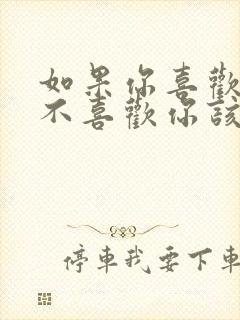 如果你喜歡
不喜歡你該
停車我要下車